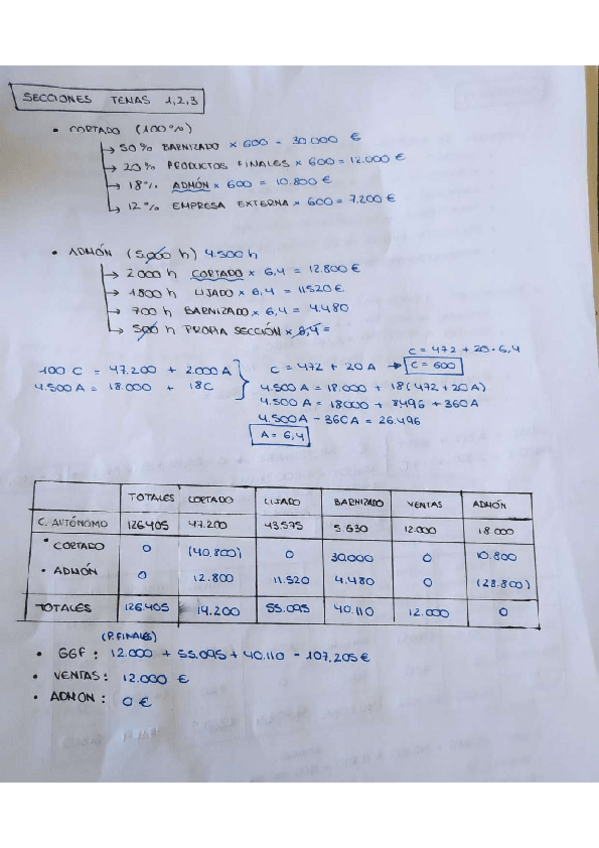 SECCIONES TEMAS 1,2,3
• CORTADO (100%)
↳ 50% BARNIZADO × 600 = 30.000 €
↳ 20% PRODUCTOS FINALES × 600 = 12.000 €
↳ 18% ADMÓN × 600 = 10.800 €
↳ 12% EMPRESA EXTERNA × 600 = 7.200 €
• ADMÓN (5.000 h) 4.500 h
↳ 2000 h CORTADO × 6,4 = 12.800 €
↳ 1800 h LIJADO × 6,4 = 11520 €
↳ 700 h BARNIZADO × 6,4 = 4.480
↳ 500 h PROPIA SECCIÓN × 6,4 =
C = 472 + 20 · 6,4
100 C = 47.200 + 2.000 A
C = 472 + 20 A → C = 600
4.500 A = 18.000 + 18C
4.500 A = 18.000 + 18 (472 + 20 A)
4.500 A = 18000 + 8496 + 360 A
4.500A - 360A = 26.496
A = 6,4
TOTALES CORTADO LIJADO BARNIZADO VENTAS ADMÓN
C. AUTÓNOMO 126.405 47.200 43.575 5.630 12.000 18.000
• CORTADO 0 (40.800) 0 30.000 0 10.800
• ADMÓN 0 12.800 11.520 4.480 0 (28.800)
TOTALES 126.405 19.200 55.095 40.110 12.000 0
(P. FINALES)
• GGF: 12.000 + 55.095 + 40.110 = 107.205 €
• VENTAS: 12.000 €
• ADMON: 0 €